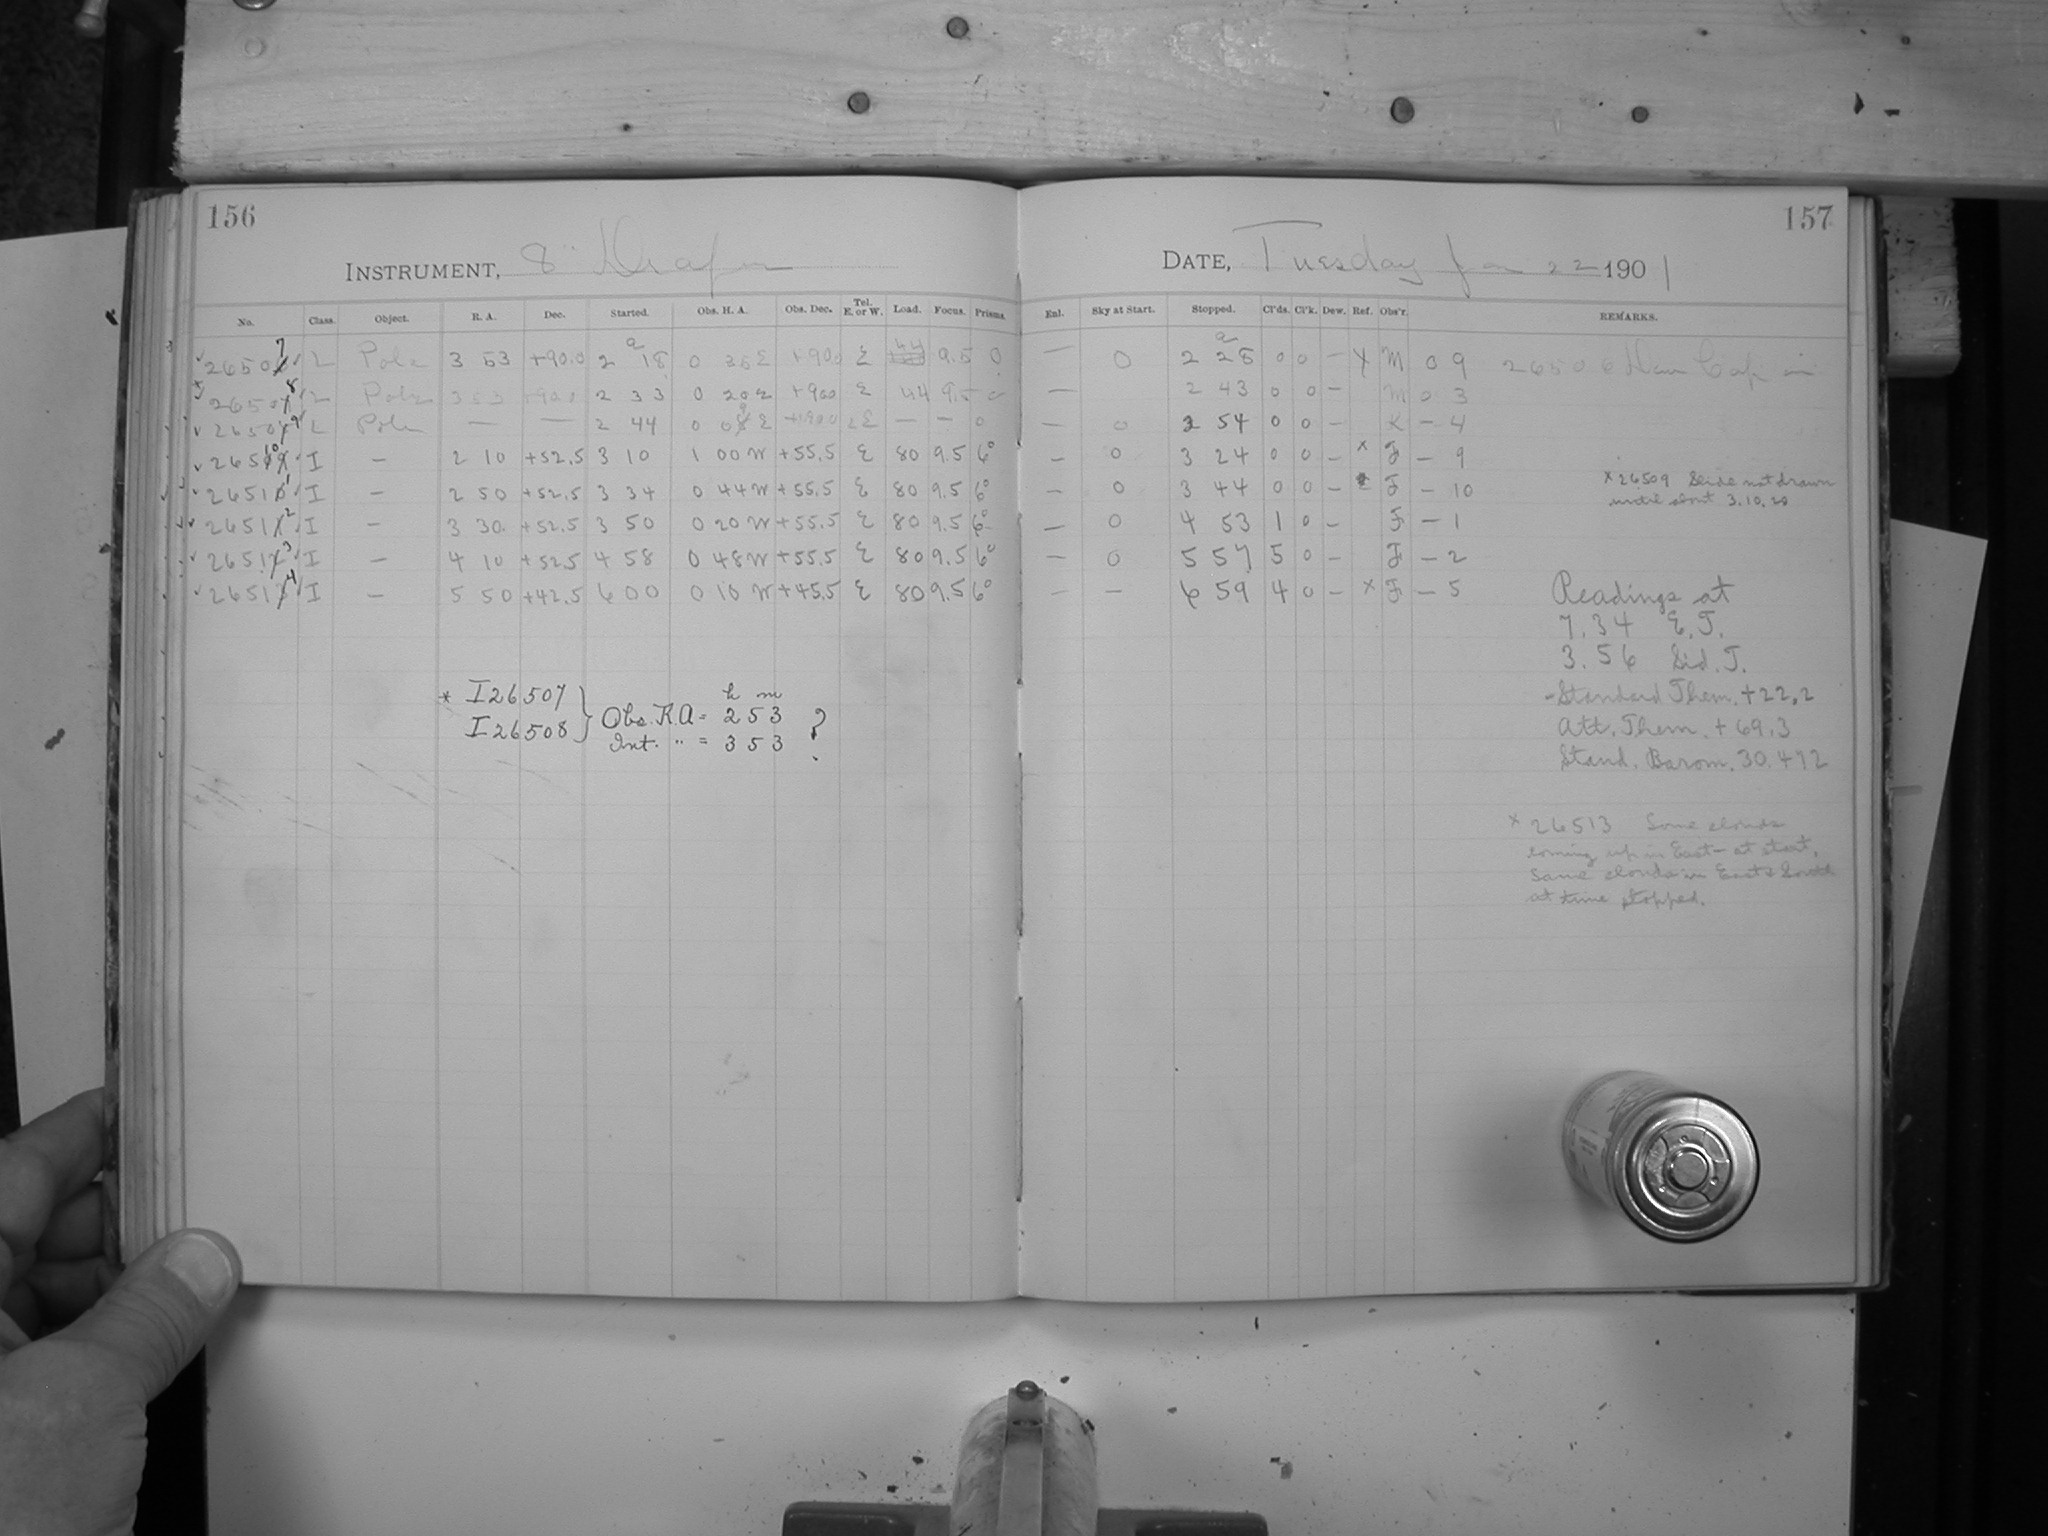 156
INSTRUMENT, 8" Draper
No. Class. Object. R. A. Dec. Started. Obs. H. A. Obs. Dec. Tel. E. or W. Load. Focus. Prisms.
26507 L Pole 3 53 +90.0 2 18 0 35 E +90.0 E 44 9.5 0
26508 L Pole 3 53 +90.0 2 33 0 20 E +90.0 E 44 9.5 0
26509 L Pole — — 2 44 0 09 E +90.0 E — — 0
26510 I — 2 10 +52.5 3 10 1 00 W +55.5 E 80 9.5 6°
26511 I — 2 50 +52.5 3 34 0 44 W +55.5 E 80 9.5 6°
26512 I — 3 30 +52.5 3 50 0 20 W +55.5 E 80 9.5 6°
26513 I — 4 10 +52.5 4 58 0 48 W +55.5 E 80 9.5 6°
26514 I — 5 50 +42.5 6 00 0 10 W +45.5 E 80 9.5 6°
* I26507 } Obs. R.A = 2h 53m
I26508 } Int. " = 3 53 ?
157
DATE, Tuesday Jan 22 1901
Enl. Sky at Start. Stopped. Cl'ds. Cl'k. Dew. Ref. Obs'r. REMARKS.
— 0 2 28 0 0 – X M 0 9 26506 Cap in
— 2 43 0 0 – M 0 3
— 0 2 54 0 0 – K – 4
— 0 3 24 0 0 – x F – 9
— 0 3 44 0 0 – F – 10
— 0 4 53 1 0 – F – 1
— 0 5 57 5 0 – F – 2
— — 6 59 4 0 – x F – 5
x 26509 Slide not drawn
until about 3.10.20
Readings at
7.34 E.T.
3.56 Sid. T.
Standard Therm. +22.2
Att. Therm. +69.3
Stand. Barom. 30.472
x 26513 Some clouds
coming up in East at start,
Some clouds in East & South
at time stopped.